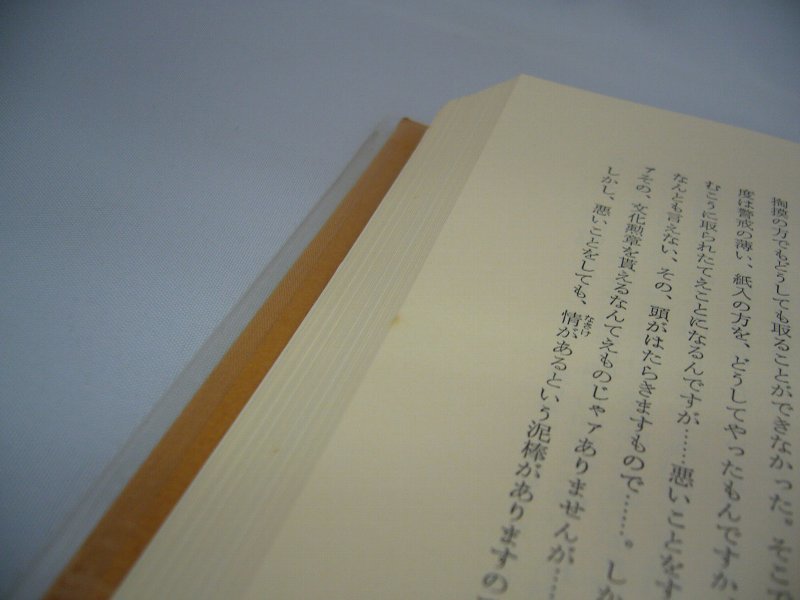 掏摸の方でもどうしても取ることができなかった。そこで
度は警戒の薄い、紙入の方を、どうしてやったもんですか、
むこうに取られたてえことになるんですが……悪いことをす
なんとも言えない、その、頭がはたらきますもので……。しか
その、文化勲章を貰えるなんてえものじゃァありませんが……
しかし、悪いことをしても、情があるという泥棒がありますの
なさけ